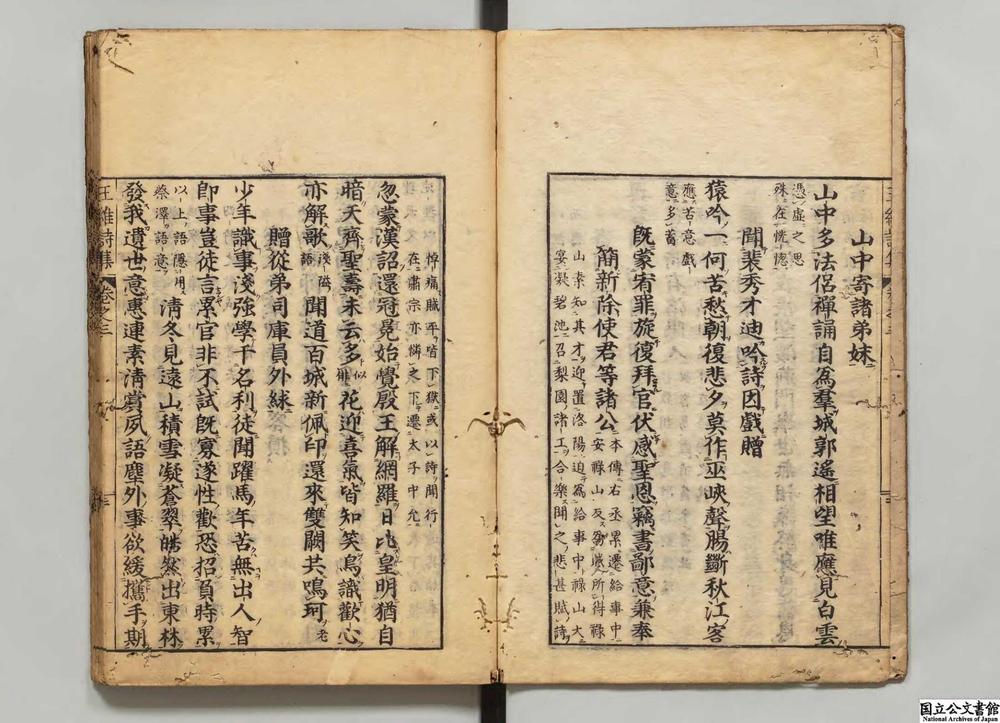 山中寄諸弟妹
山中多法侶禪誦自為羣城郭遙相望唯應見白雲
憑虛之思
殊在恍惚
聞裴秀才迪吟詩因戲贈
猿吟一何苦愁朝復悲夕莫作巫峽聲腸斷秋江客
應苦意戲
意多蓄
既蒙宥罪旋復拜官伏感聖恩竊書鄙意兼奉
簡新除使君等諸公
本傳右丞累遷給事中
安祿山反為賊所得祿
山素知其才迎置洛陽迫為給事中祿山大
宴凝碧池召梨園諸工合樂聞之悲甚賦詩
悼痛賊平皆下獄或以詩聞行
在肅宗亦憐之下遷太子中允
忽蒙漢詔還冠冕始覺殷王解網羅日比皇明猶自
暗天齊聖壽未云多
似俳
花迎喜氣皆知笑鳥識歡心
亦解歌
淺俗語
聞道百城新佩印還來雙闕共鳴珂
老
贈從弟司庫員外絿
少年識事淺強學干名利徒聞躍馬年苦無出人智
卽事豈徒言累官非不試旣寡遂性歡恐招負時累
以上語隱用
蔡澤語意
清冬見遠山積雪凝蒼翠皓然出東林
發我遺世意惠連素清賞夙語塵外事欲緩攜手期
王維詩集 卷之三
国立公文書館
National Archives of Japan